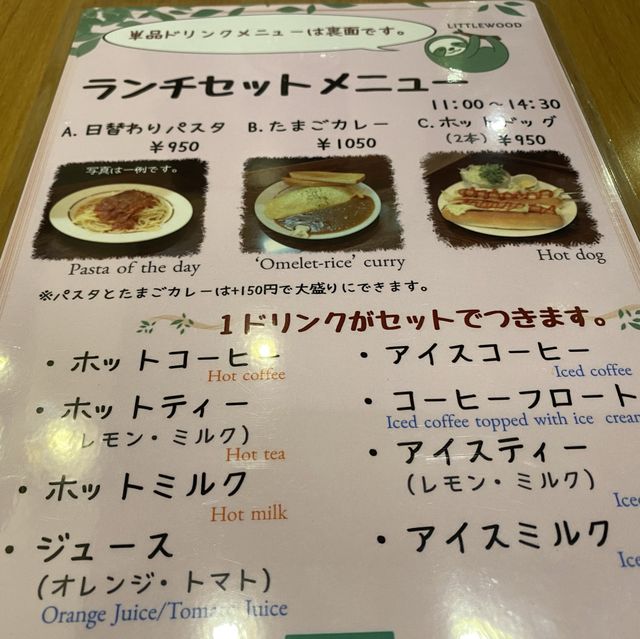 単品ドリンクメニューは裏面です。
LITTLEWOOD
ランチセットメニュー
11:00～14:30
A. 日替わりパスタ
￥950
B. たまごカレー
￥1050
C. ホットドッグ
(2本) ￥950
写真は一例です。
Pasta of the day
'Omelet-rice' curry
Hot dog
※パスタとたまごカレーは+150円で大盛りにできます。
1ドリンクがセットでつきます。
・ホットコーヒー
Hot coffee
・ホットティー
(レモン・ミルク)
Hot tea
・ホットミルク
Hot milk
・ジュース
(オレンジ・トマト)
Orange Juice/Tomato Juice
・アイスコーヒー
Iced coffee
・コーヒーフロート
Iced coffee topped with ice cream
・アイスティー
(レモン・ミルク)
Iced
・アイスミルク